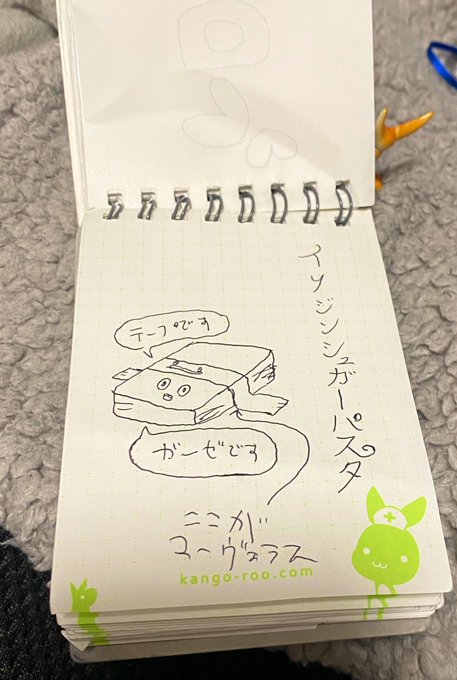 イソジンシュガーパスタ
テープです
ガーゼです
ここが
マーヴェラス
kango-roo.com